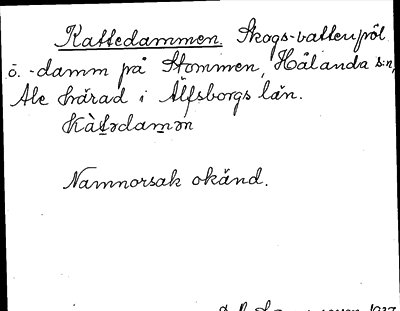 Kattedammen. Skogs-vattenpöl
o. -damm på Stommen, Hålanda s:n,
Ale härad i Älfsborgs län.
Kàt̲ədamən
Namnorsak okänd.